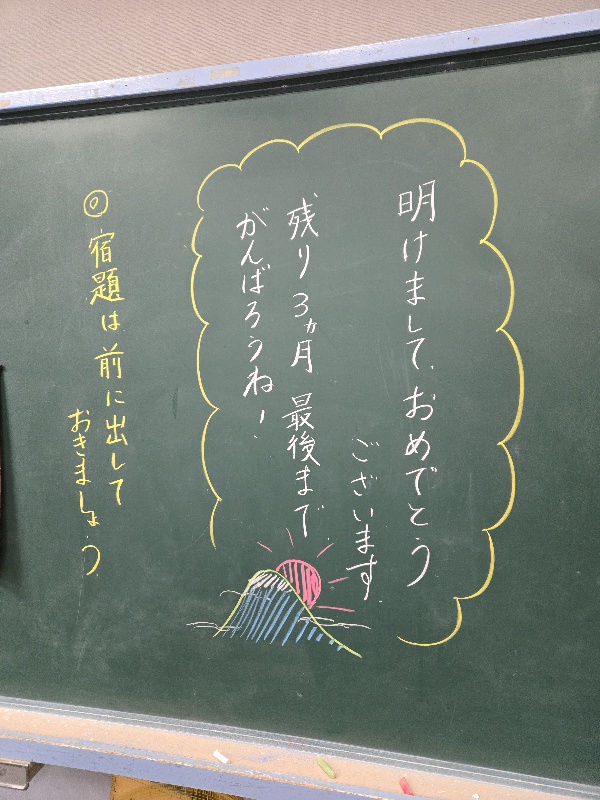 明けまして、おめでとう
ございます
残り3ヵ月 最後まで
がんばろうね!
◎ 宿題は 前に出して
おきましょう